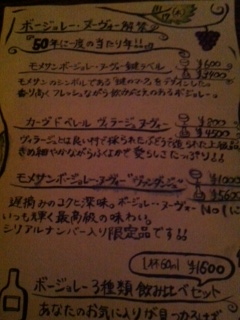 ボージョレー・ヌーヴォー解禁
50年に一度の当たり年!!
モメサンボージョレー・ヌーヴォー鍵ラベル ¥600
モメサンのシンボルである"鍵"のマークをモチーフにした。
香り高くフレッシュながら飲み応えのあるボージョレー。
カーヴドベレール ヴィラージュヌーヴォー
¥4500
ヴィラージュとは良い村で採られたぶどうで造られた上級品。
きめ細やかながらふくよかで愛らしさたっぷり!!
モメサンボージョレー・ヌーヴォー "ヴァンダンジュ" ¥1000
¥5600
遅摘みのコクと深味。ボージョレー・ヌーヴォー No1に
いつも輝く最高級の味わい。
シリアルナンバー入り限定品です!!
1杯60ml ¥1600
ボージョレー3種類飲み比べセット
あなたのお気に入りが見つかるはず